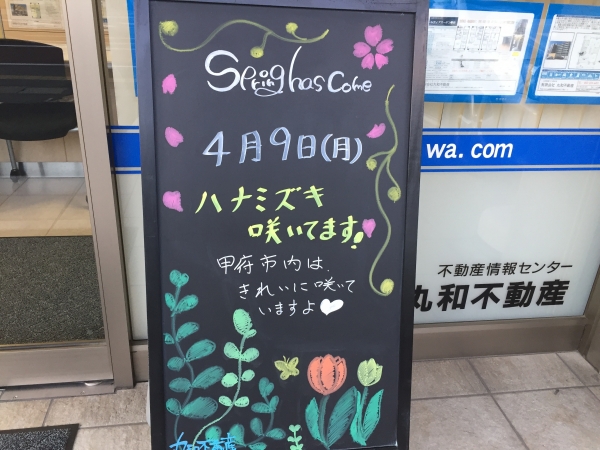 Spring has come
4月9日(月)
ハナミズキ
咲いてます!
甲府市内は、
きれいに咲いて
いますよ
丸和不動産
wa.com
不動産情報センター
丸和不動産